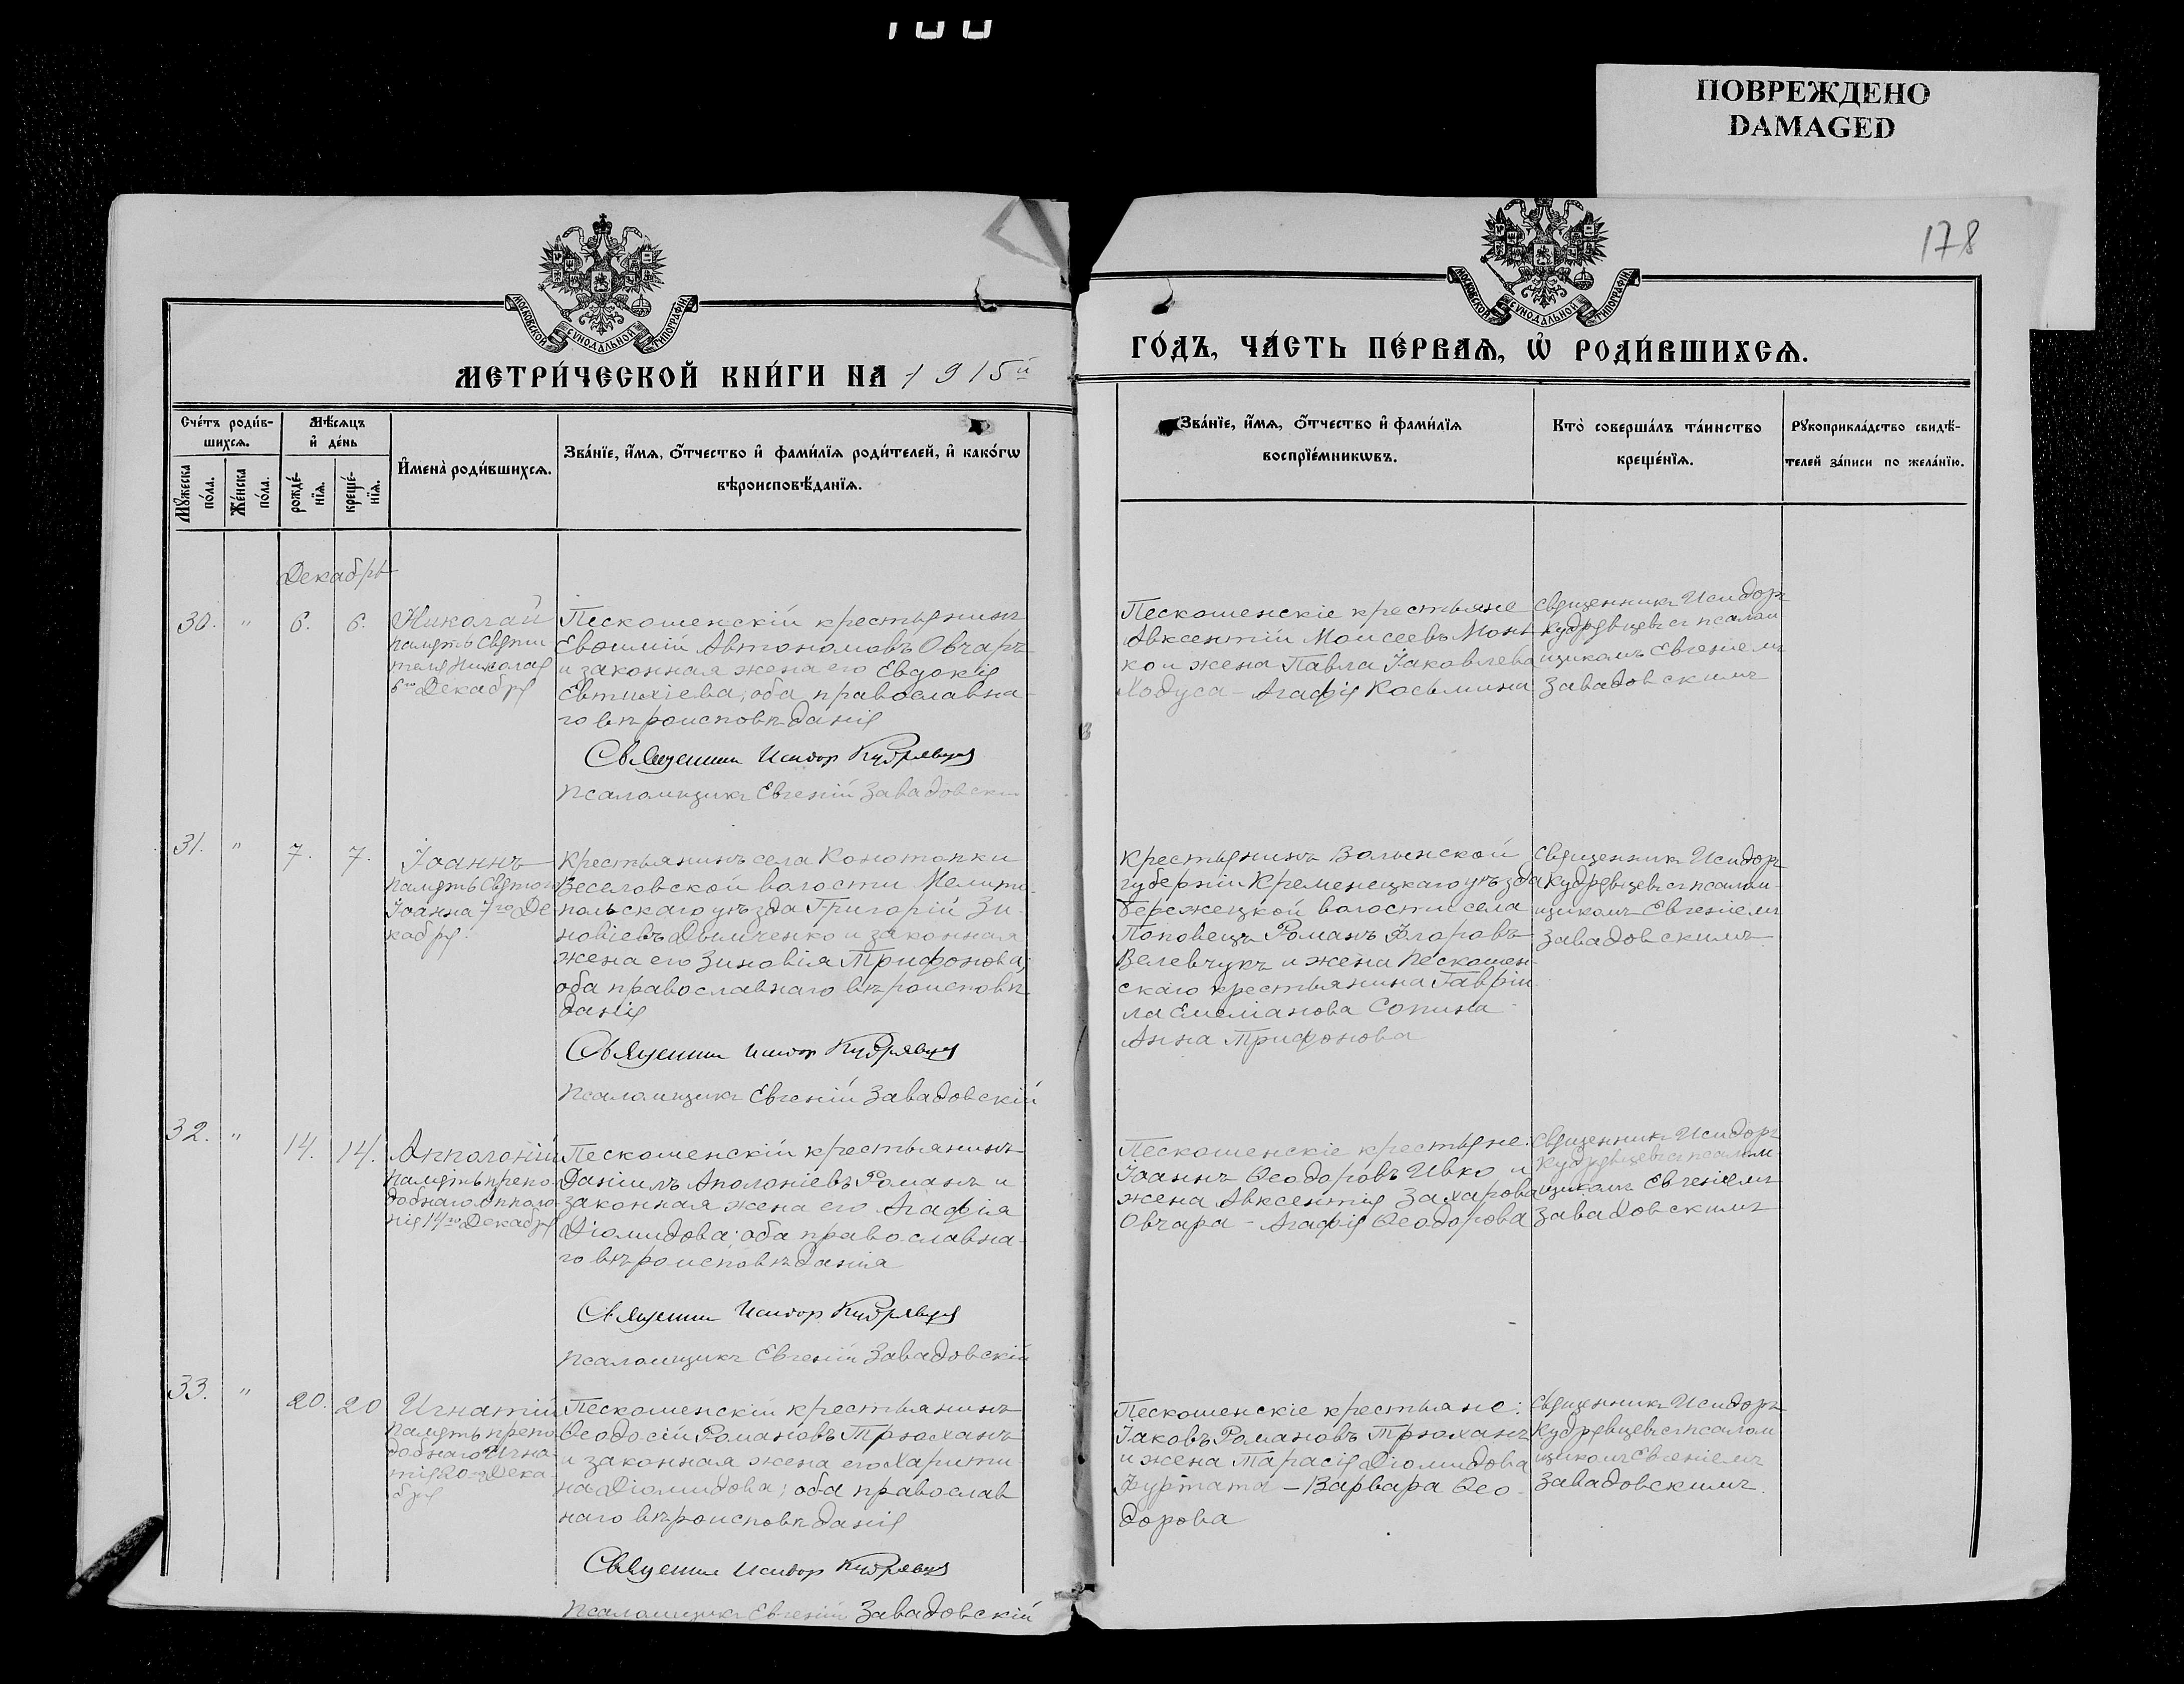 ПОВРЕЖДЕНО
DAMAGED
178
МОСКОВСКОЙ СѴНОДАЛЬНОЙ ТИПОГРАФІИ
МОСКОВСКОЙ СѴНОДАЛЬНОЙ ТИПОГРАФІИ
МЕТРИ́ЧЕСКОЙ КНИ́ГИ НА 1915й
ГО́ДЪ, ЧА́СТЬ ПЕ́РВАѦ, Ѡ҆ РОДИ́ВШИХСѦ.
Сче́тъ роди́в-
шихсѧ.
Мꙋ́жеска
по́ла.
Же́нска
по́ла.
Мѣ́сѧцъ
и҆ де́нь
рожде́-
нїѧ.
креще́-
нїѧ.
И҆мена̀ роди́вшихсѧ.
Зва́нїе, и҆́мѧ, ѻ҆́тчество и҆ фами́лїѧ роди́телей, и҆ како́гѡ
вѣроисповѣ́данїѧ.
Зва́нїе, и҆́мѧ, ѻ҆́тчество и҆ фами́лїѧ
воспрїе́мникѡвъ.
Кто̀ соверша́лъ та́инство
креще́нїѧ.
Рꙋкоприкла́дство свидѣ́-
телей за́писи по жела́нїю.
Декабрь
30. " 6. 6.
Николай
память Святи
теля Николая
6го Декабря
Пескошенскій крестьянинъ
Евѳимій Автономовъ Овчаръ
и законная жена его Евдокія
Евтихіева; оба православна-
го вѣроисповѣданія
Священникъ Исидор Кудрявцев
Псаломщикъ Евгеній Завадовскій
Пескошенскіе крестьяне
Авксентій Моисеевъ Монь
ко и жена Павла Іаковлева
Ходуса - Агафія Косьмина
Священникъ Исидоръ
Кудрявцевъ съ псалом
щикомъ Евгеніемъ
Завадовскимъ
31. " 7. 7.
Іоаннъ
память Святого
Іоанна 7го Де
кабря.
Крестьянинъ села Конотопки
Веселовской волости Мелито-
польскаго уѣзда Григорій Зи-
новіевъ Дымченко и законная
жена его Зиновія Трифонова;
оба православнаго вѣроисповѣ
данія
Священникъ Исидор Кудрявцев
Псаломщикъ Евгеній Завадовскій
Крестьянинъ Волынской
губерніи Кременецкаго уѣзда
Бережецкой волости села
Поповецъ Романъ Флоровъ
Велевчукъ и жена Пескошен-
скаго крестьянина Гаврiи
ла Емеліанова Сопина -
Анна Трифонова
Священникъ Исидоръ
Кудрявцевъ съ псалом-
щикомъ Евгеніемъ
Завадовскимъ
32. " 14. 14.
Апполоній
Память препо
добнаго Апполо
нія 14го Декабря
Пескошенскій крестьянинъ
Даніилъ Аполоніевъ Романъ и
законная жена его Агафія
Діомидова; оба православна-
го вѣроисповѣданія
Священникъ Исидор Кудрявцев
Псаломщикъ Евгеній Завадовскій
Пескошенскіе крестьяне:
Іоаннъ Ѳеодоровъ Ивко и
жена Авксентія Захарова
Овчара - Агафія Ѳеодорова
Священникъ Исидоръ
Кудрявцевъ съ псалом-
щикомъ Евгеніемъ
Завадовскимъ
33. " 20. 20
Игнатій
Память препо
добнаго Игна
тія 20го Дека
бря
Пескошенскій крестьянинъ
Ѳеодосій Романовъ Трюханъ
и законная жена его Харити-
на Діомидова; оба православ
наго вѣроисповѣданія
Священникъ Исидор Кудрявцев
Псаломщикъ Евгеній Завадовскій
Пескошенскіе крестьяне:
Іаковъ Романовъ Трюханъ
и жена Тарасія Діомидова
Фуртата - Варвара Ѳео-
дорова
Священникъ Исидоръ
Кудрявцевъ съ псалом
щикомъ Евгеніемъ
Завадовскимъ.